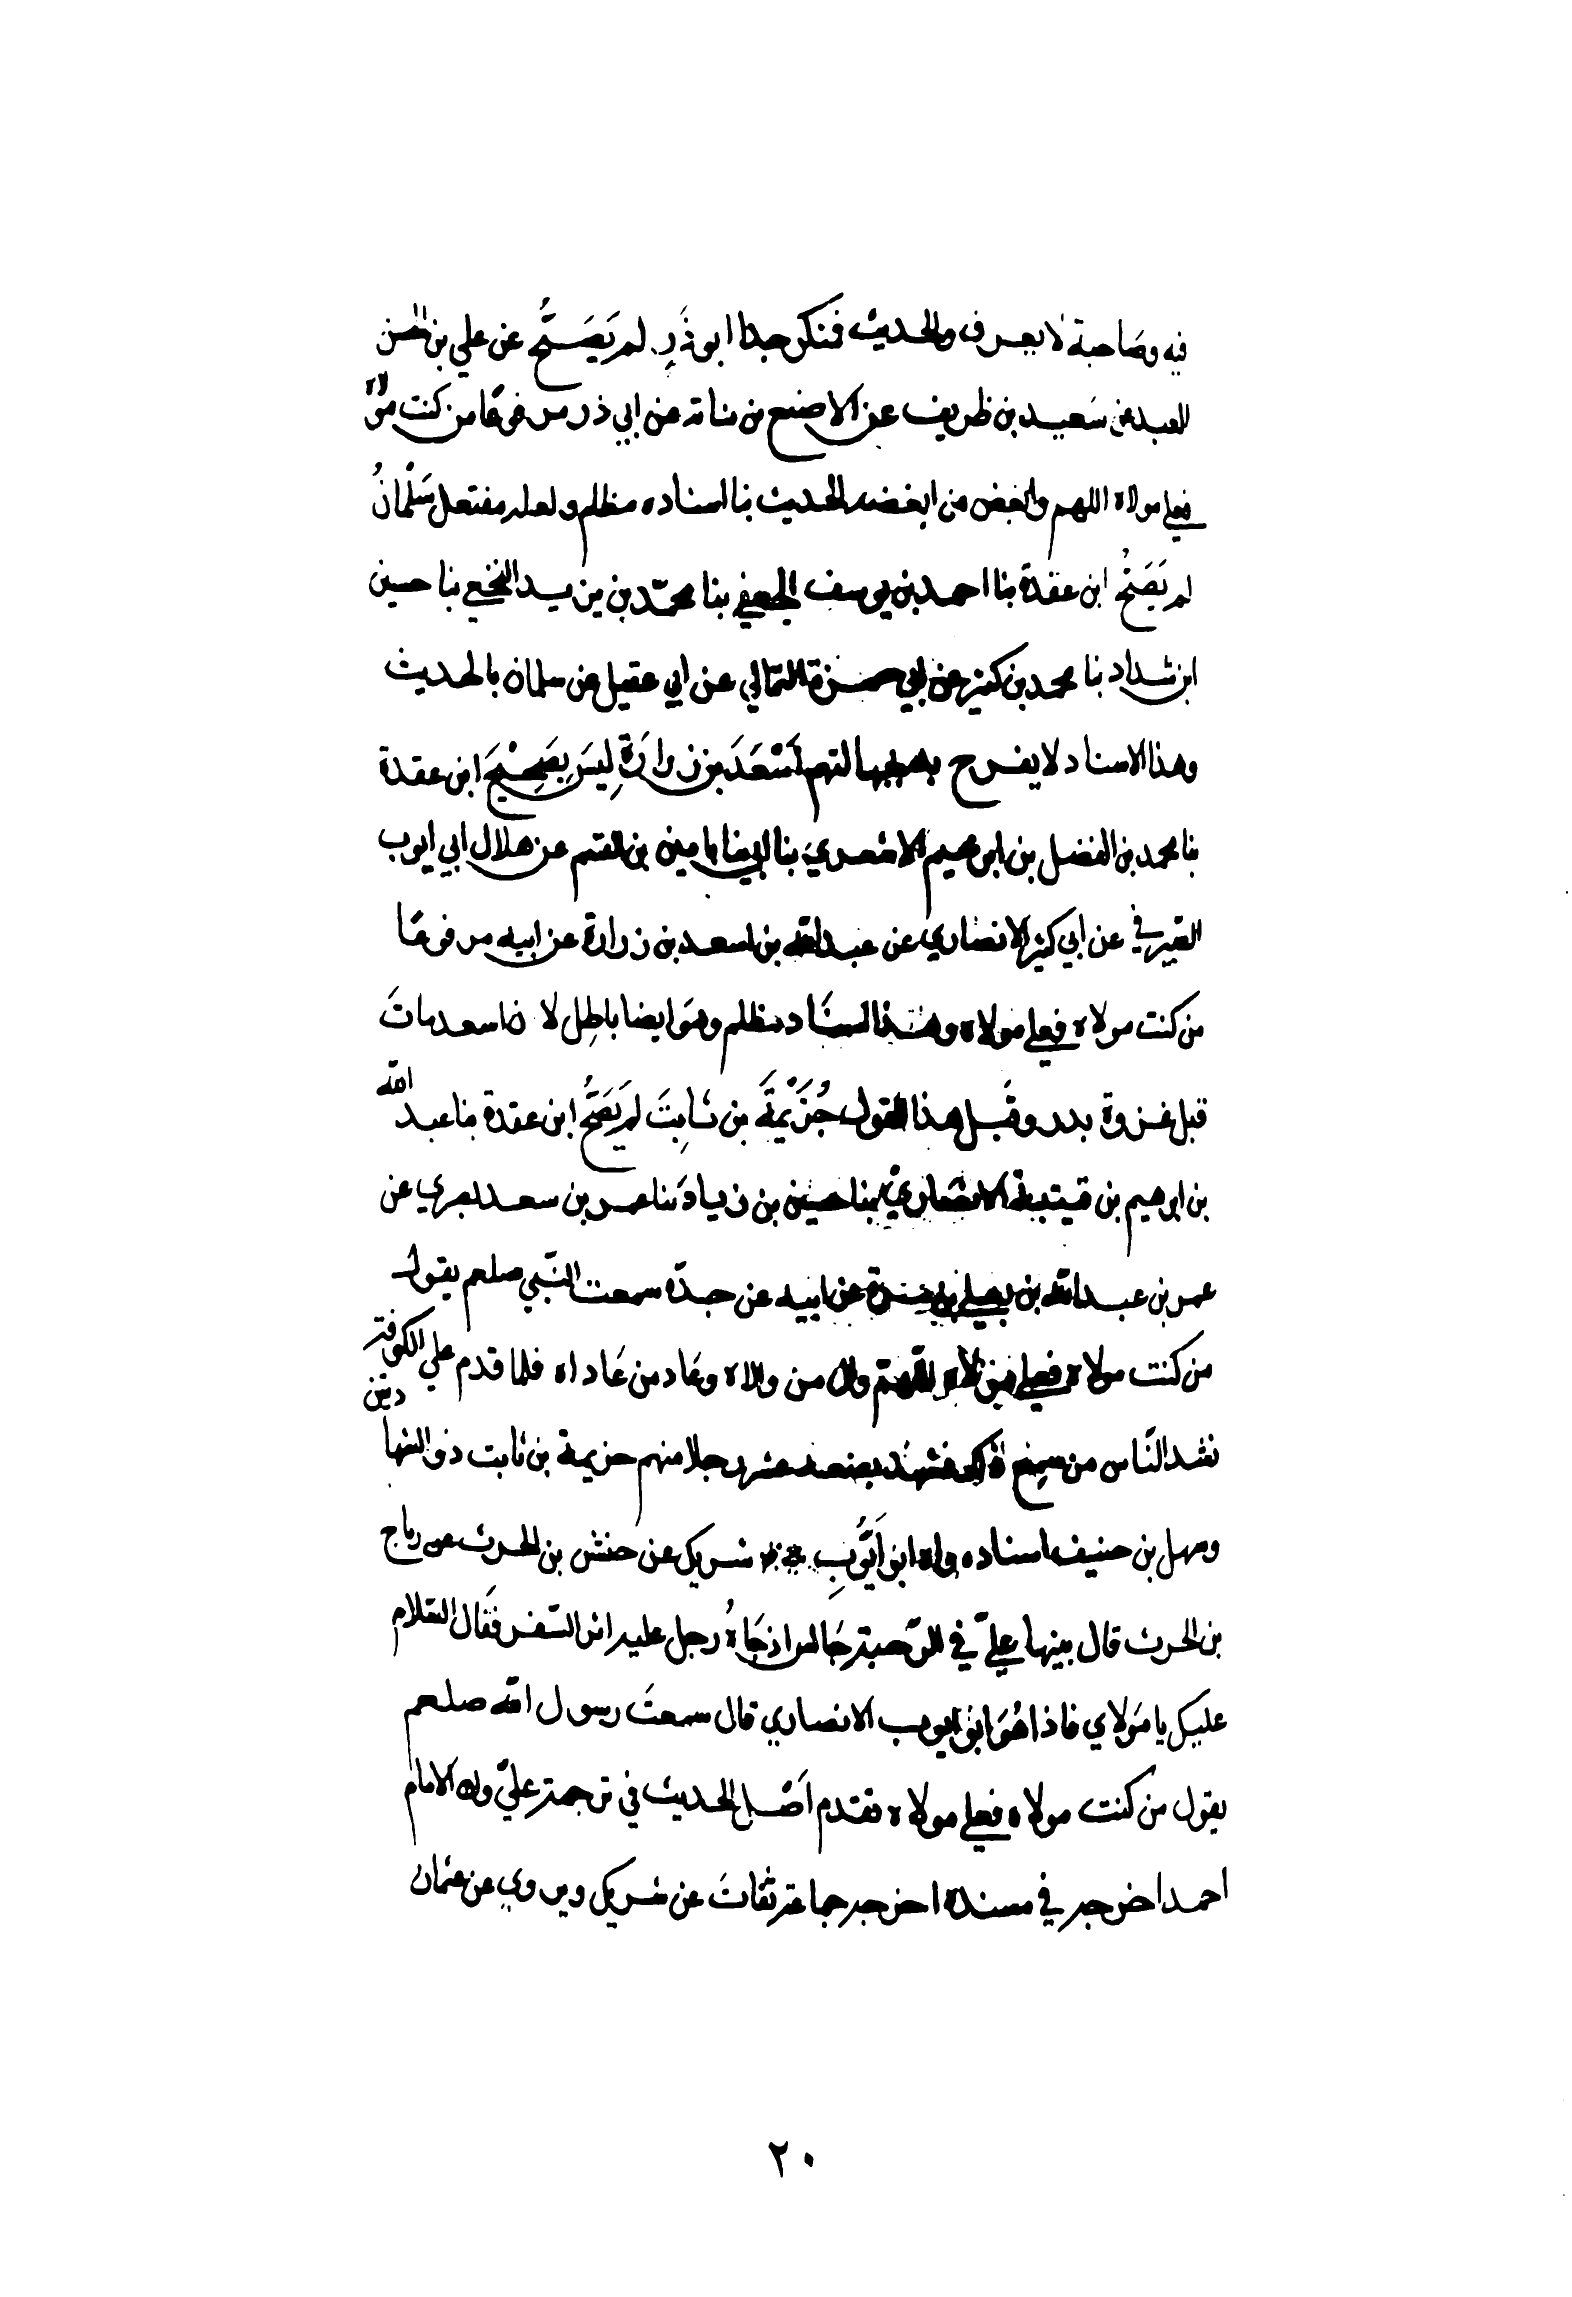 فيه وصاحبة لا يعرف والحديث فمنكر جدا ابو ذَرٍ لم يَصَحُّ عن علي بن الحسن
العبد عن سَعيد بن ظريف عن الاصبع بن نباته عن ابي ذر مرفوعًا من كنت مولاه
فعلي مولاه اللهم وابغض من ابغضه الحديث بنا اسناده مظلم ولعله مفتعل سَلْمانُ
لم يَصَحُّ ابن عقدة بنا احمد بن يوسف الجعفي بنا محمّد بن يزيد النخعي بنا حسين
ابن شداد بنا محمد بن كثير عن ابي حمزة الثمالي عن ابي عقيل عن سلمان بالحديث
وهذا الاسناد لا يفرح به اَسْعَدَ بن زرارَةِ ليسَ بِصَحِيْحَ ابن عقدة
بنا محمد بن الفضل بن ابرهيم الاشعري بنا ابينا بن القسم عن هلال ابي ايوب
الصيرفي عن ابي كثير الانصاري عن عبد الله بن اسعد بن زرارة عن ابيه مرفوعًا
من كنت مولاه فعلي مولاه وهذا السناد مظلم وهوَ ايضا باطِل لا ن اسعد ماتَ
قبل غزوة بدر وقَبل هذا القول خُزَيْمَةَ بن ثابِتَ لم يَصَحُّ ابن عقدة بنا عبد الله
بن ابرهيم بن قتيبة الانصاري بنا حسين بن زيادَ بنا عمر بن سعد بصري عن
عمر بن عبد الله بن يعلى بن مرة عن ابيه عن جدّه سمعت النّبي صلعم يقول
من كنت مولاه فعلي مولاه اللّهمّ وال من والاه وعاد من عاداه فلما قدم علي الكوفة
نشد النّاس من سمِعَ ذلك فشهد بضعة عشر رجلا منهم خزيمة بن ثابت ذو الشهادتين
وسهل بن حنيف اسناده واه ابو اَيُّوبِ شريك عن حنش بن الحرث عن رياح
بن الحرث قال بينها عليّ في الرّحبة جَالس اذ جَاءُ رجل عليه اثر السّفر فقَال السّلام
عليك يا مَولاي فاذا هُوَ ابو ايوب الانصاري قال سمعتَ رسول الله صلعم
يقول من كنت مولاه فعلي مولاه تقدم اَصْل الحديث في ترجمة عليّ وله الامام
احمد اخرجه في مسنده اخرجه جماعة ثقاتَ عن شريك ويروي عن عثمان
٢٠